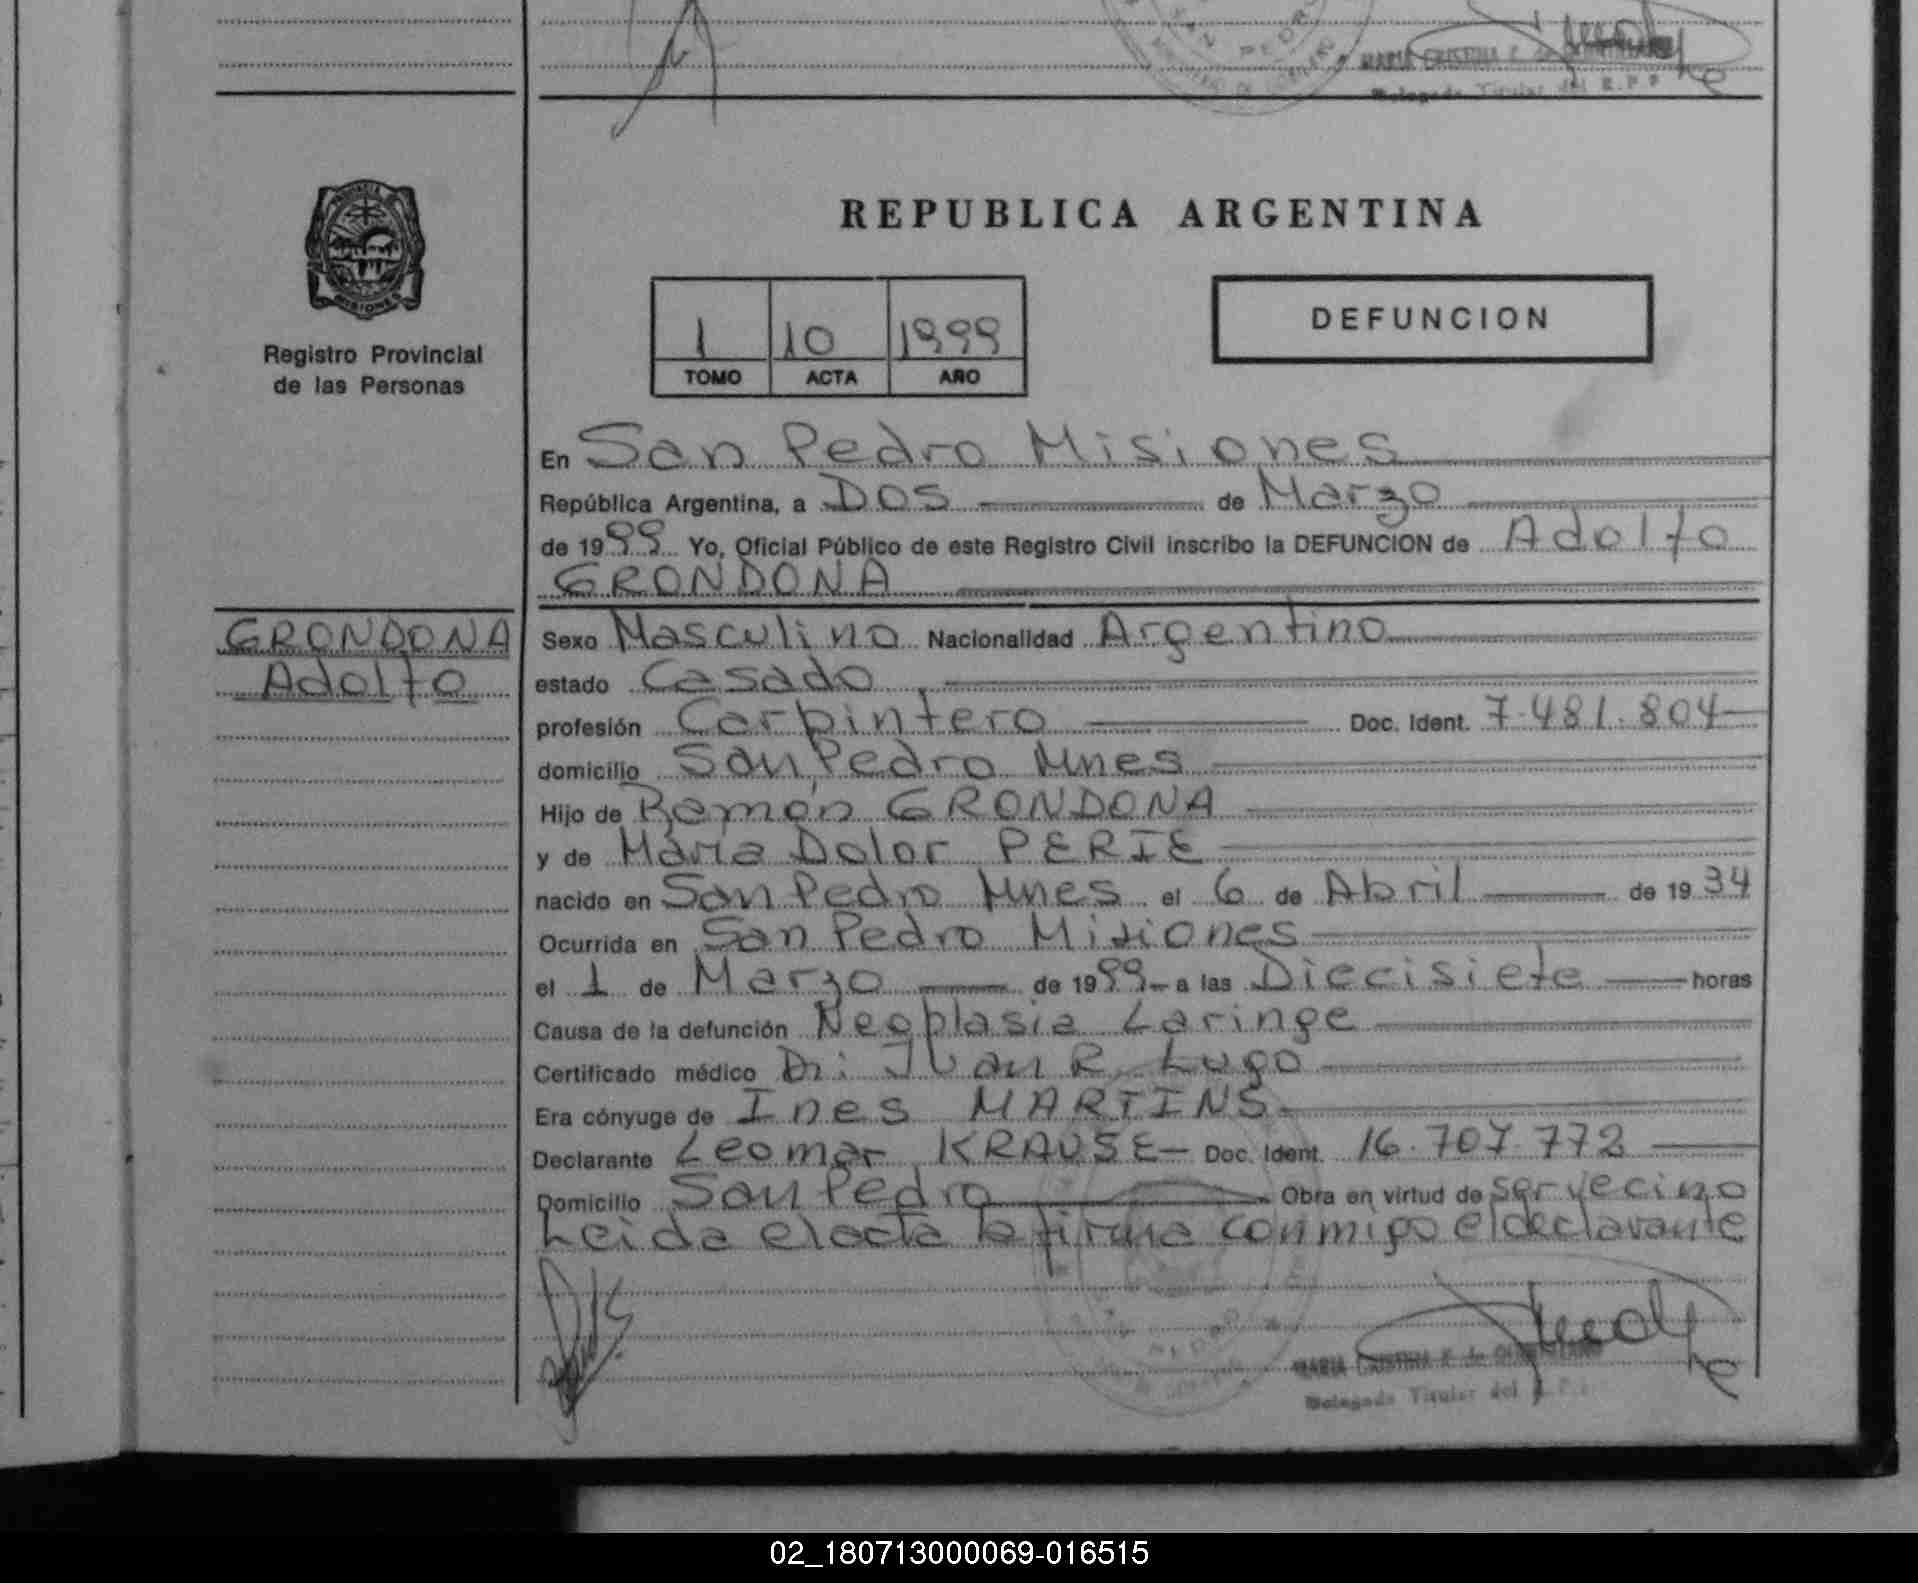 REPUBLICA ARGENTINA
1 10 1999
TOMO ACTA AÑO
DEFUNCION
PROVINCIA DE
MISIONES
Registro Provincial
de las Personas
GRONDONA
Adolfo
En San Pedro Misiones
República Argentina, a Dos de Marzo
de 1999 Yo, Oficial Público de este Registro Civil inscribo la DEFUNCION de Adolfo
GRONDONA
Sexo Masculino Nacionalidad Argentino
estado Casado
profesión Carpintero Doc. Ident. 7.481.804
domicilio San Pedro Mnes
Hijo de Ramón GRONDONA
y de Maria Dolor PERIE
nacido en San Pedro Mnes el 6 de Abril de 1934
Ocurrida en San Pedro Misiones
el 1 de Marzo de 1999 a las Diecisiete horas
Causa de la defunción Neoplasia Laringe
Certificado médico Dr: Juan R. Lugo
Era cónyuge de Ines MARTINS
Declarante Leomar KRAUSE Doc. Ident. 16.707.772
Domicilio San Pedro Obra en virtud de ser vecino
Leida el acta la firma conmigo el declarante
MARIA CRISTINA F. de
Delegada Titular del R.P.P.
02_180713000069-016515